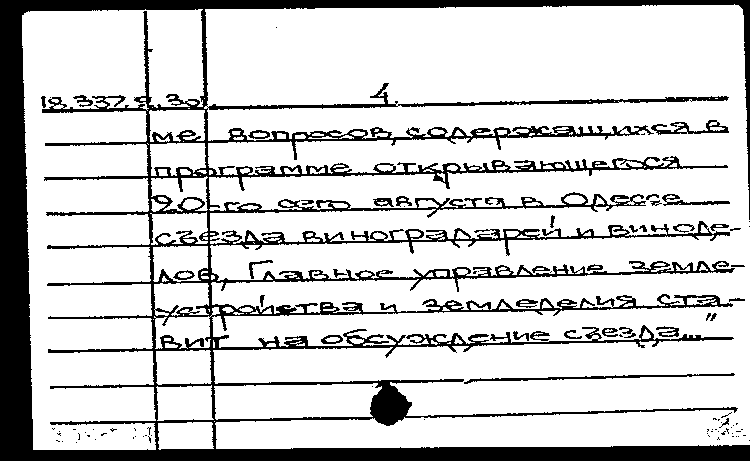 18.337.8.301. 4.
ме вопросов, содержащихся в
программе открывающегося
20-го сего августа в Одессе
съезда виноградарей и виноде-
лов, Главное управление земле-
устройства и земледелия ста-
вит на обсуждение съезда..."